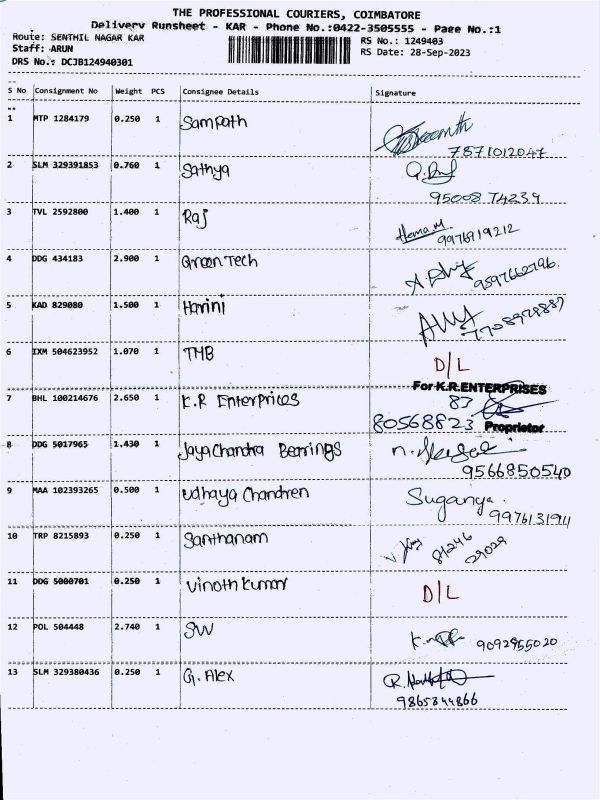 THE PROFESSIONAL COURIERS, COIMBATORE
Delivery Runsheet - KAR - Phone No.:0422-3505555 - Page No.:1
Route: SENTHIL NAGAR KAR RS No.: 1249403
Staff: ARUN RS Date: 28-Sep-2023
DRS No.: DCJB124940301
S No Consignment No Weight PCS Consignee Details Signature
1 MTP 1284179 0.250 1 Sampath
7871012047
2 SLM 329391853 0.760 1 Sathya
95008 74239
3 TVL 2592800 1.400 1 Raj Hema.M
9976919212
4 DDG 434183 2.900 1 Green Tech 9597662796.
5 KAD 829080 1.500 1 Harini
6 IXM 504623952 1.070 1 TMB D/L
For K.R.ENTERPRISES
7 BHL 100214676 2.650 1 K.R Enterprices 83
80568823 Proprietor
8 DDG 5017965 1.430 1 Jaya Chandra Bearings
9566850540
9 MAA 102393265 0.500 1 Udhaya Chandren Suganya.
9976131911
10 TRP 8215893 0.250 1 Santhanam 81246
29029
11 DDG 5000701 0.250 1 Vinoth Kumar D/L
12 POL 504448 2.740 1 SW 9092955020
13 SLM 329380436 0.250 1 G. Alex
9865344866